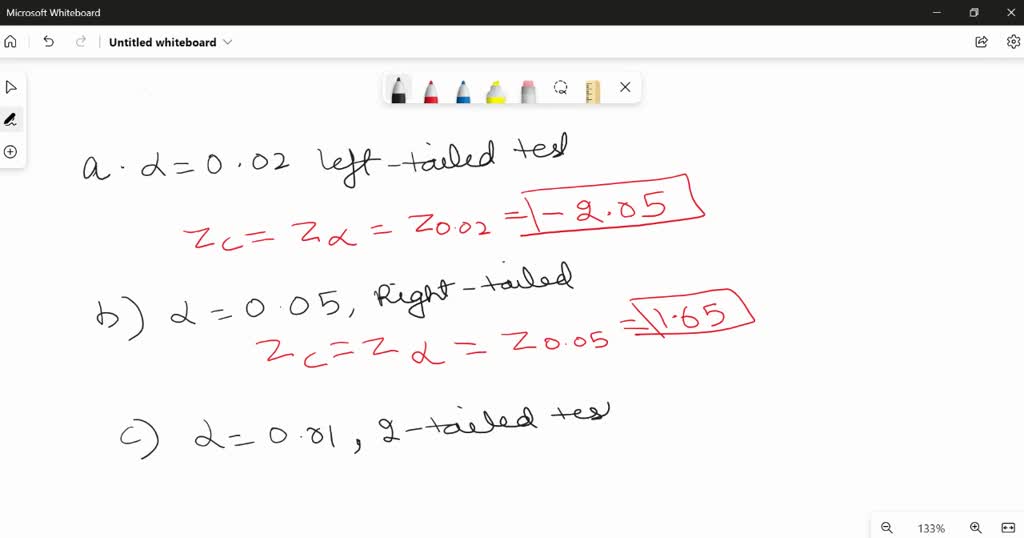 Microsoft Whiteboard
Untitled whiteboard
a. α = 0.02 left-tailed test
Zc = Zα = Z0.02 = -2.05
b) α = 0.05, Right-tailed
Zc = Zα = Z0.05 = 1.65
c) α = 0.01, 2-tailed tes
133%